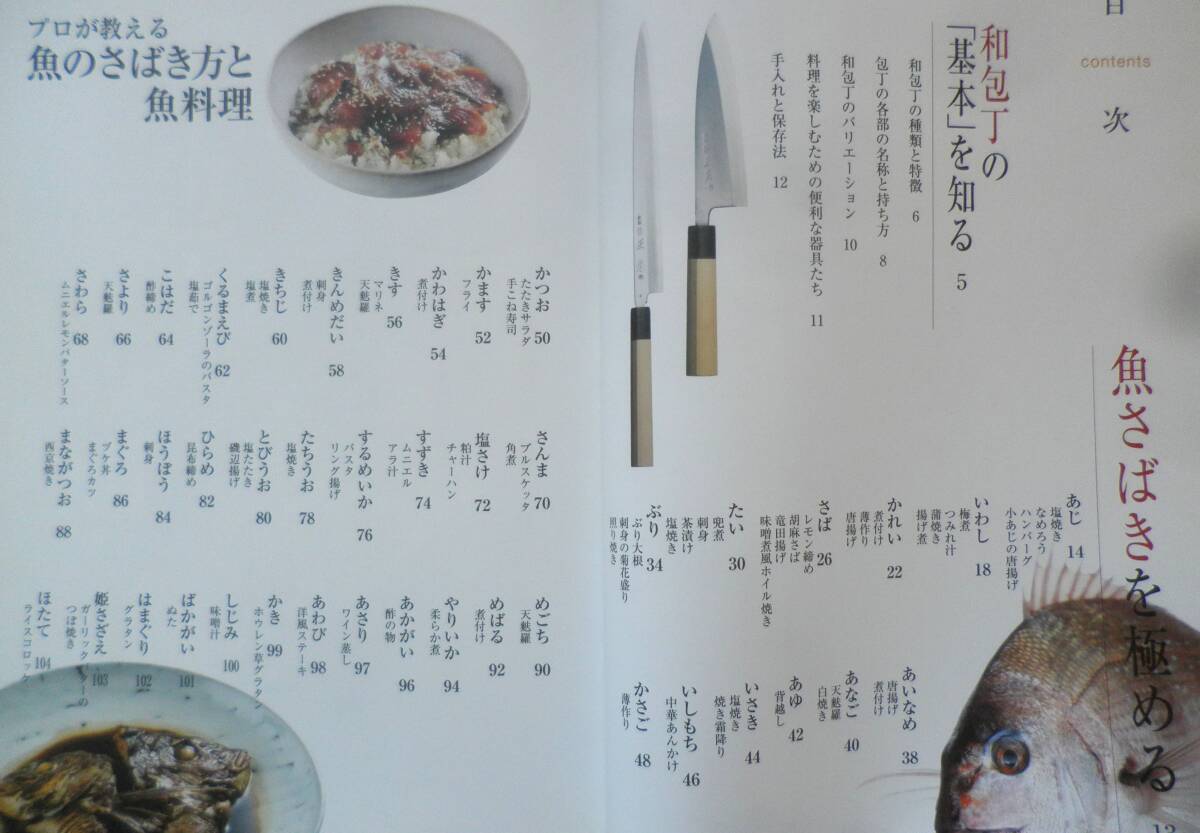 目次
contents
和包丁の
「基本」を知る 5
和包丁の種類と特徴 6
包丁の各部の名称と持ち方 8
和包丁のバリエーション 10
料理を楽しむための便利な器具たち 11
手入れと保存法 12
魚さばきを極める 13
あじ 14
塩焼き
なめろう
ハンバーグ
小あじの唐揚げ
いわし 18
梅煮
つみれ汁
蒲焼き
揚げ煮
かれい 22
煮付け
薄作り
唐揚げ
さば 26
レモン締め
胡麻さば
竜田揚げ
味噌煮風ホイル焼き
たい 30
兜煮
刺身
茶漬け
塩焼き
ぶり 34
ぶり大根
刺身の菊花盛り
照り焼き
あいなめ 38
唐揚げ
煮付け
あなご 40
天麩羅
白焼き
あゆ 42
背越し
いさき 44
塩焼き
焼き霜降り
いしもち 46
中華あんかけ
かさご 48
薄作り
プロが教える
魚のさばき方と
魚料理
かつお 50
たたきサラダ
手こね寿司
かます 52
フライ
かわはぎ 54
煮付け
きす 56
マリネ
天麩羅
きんめだい 58
刺身
煮付け
きちじ 60
塩焼き
塩煮
くるまえび 62
ゴルゴンゾーラのパスタ
塩茹で
こはだ 64
酢締め
さより 66
天麩羅
さわら 68
ムニエルレモンバターソース
さんま 70
ブルスケッタ
角煮
塩さけ 72
チャーハン
粕汁
すずき 74
ムニエル
アラ汁
するめいか 76
パスタ
リング揚げ
たちうお 78
塩焼き
とびうお 80
塩たたき
磯辺揚げ
ひらめ 82
昆布締め
ほうぼう 84
刺身
まぐろ 86
ブケ丼
まぐろカツ
まながつお 88
西京焼き
めごち 90
天麩羅
めばる 92
煮付け
やりいか 94
柔らか煮
あかがい 96
酢の物
あさり 97
ワイン蒸し
あわび 98
洋風ステーキ
かき 99
ホウレン草グラタン
しじみ 100
味噌汁
ばかがい 101
ぬた
はまぐり 102
グラタン
姫さざえ 103
ガーリックバターの
つぼ焼き
ほたて 104
ライスコロッケ